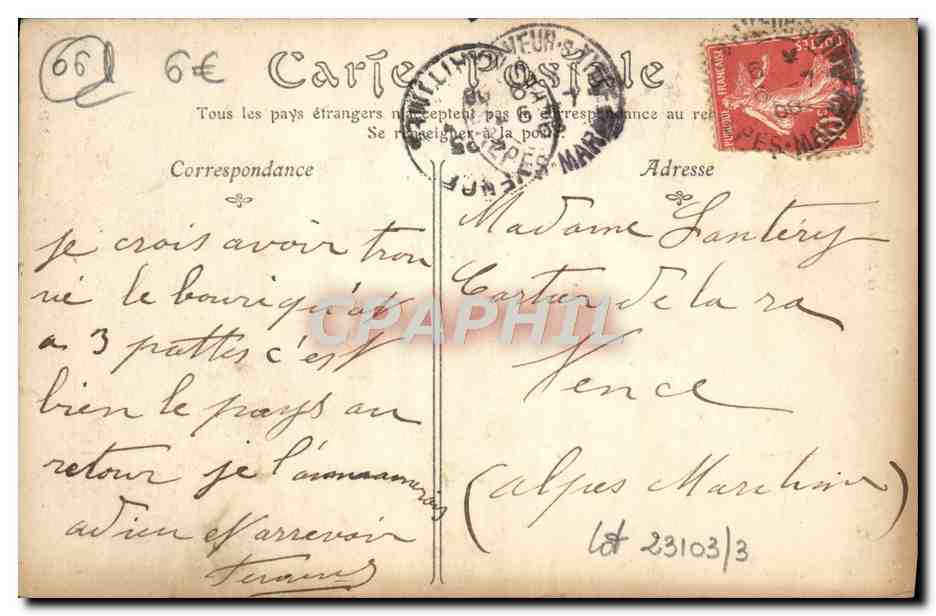 661 6€
Carte Postale
Tous les pays étrangers n'acceptent pas la correspondance au re
Se renseigner à la poste
Correspondance
Adresse
je crois avoir trou
vé le bouriqu'ap
a 3 pattes c'est
bien le pays au
retour je l'
adieu et arrevoir
Madame Lantéry
Cartier de la ra
Vence
(alpes Maritime)
lot 23103/3
CPAPHIL
VENCE
POSTES